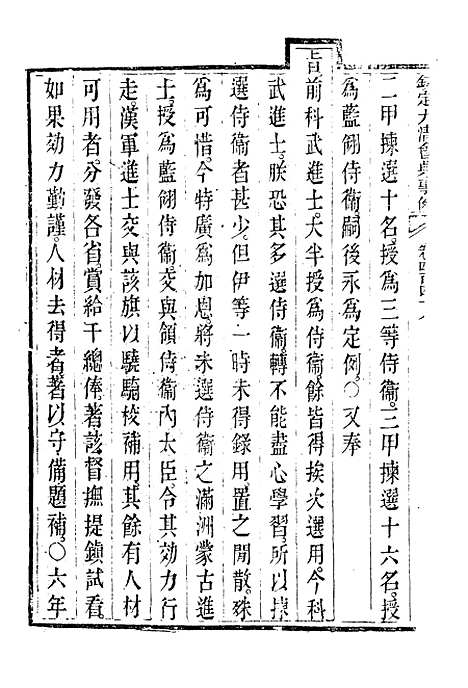 欽定大清會典事例 卷四百四十八
二甲揀選十名。授爲三等侍衞。三甲揀選十六名。授
爲藍翎侍衞。嗣後永爲定例。○又奉
旨前科武進士。大半授爲侍衞。餘皆得挨次選用。今科
武進士。朕恐其多選侍衞。轉不能盡心學習。所以揀
選侍衞者甚少。但伊等一時未得錄用。置之閒散。殊
爲可惜。今特廣爲加恩。將未選侍衞之滿洲蒙古進
士。授爲藍翎侍衞。交與領侍衞內大臣。令其効力行
走。漢軍進士交與該旗以驍騎校補用。其餘有人材
可用者。分發各省。賞給千總俸。著該督撫提鎭試看。
如果効力勤謹。人材去得者。著以守備題補。○六年